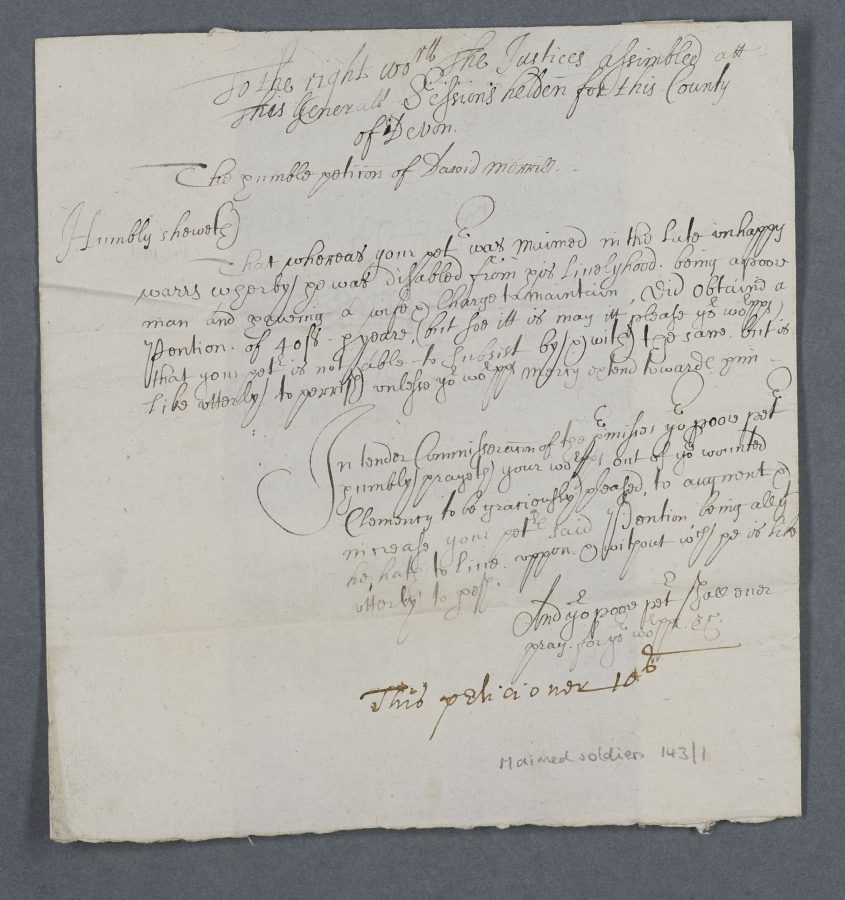 To the right wor:ll the Justices assembled att
this Generall Sessions helden for this County
of Devon.
The humble peticon of David Merrill.
Humbly sheweth
That whereas your petr was maimed in the late unhappy
warrs wherby he was disabled from his livelyhood. being a poore
man and haveing a wife & Charge to maintain, Did obtaind a
Pention. of 40s. p yeare, (but soe itt is may itt please yor worpps)
that your petr is not able to subsist by & with the same but is
like utterly to perrish unlesse yor worpps mercy extend towards him.
In tender Commisseracon of the pmisses yor poore petr
humbly prayeth your worpps out of yor wounted
Clemency to be graciously pleased, to augment &
increase your petrs said Pention being all yt
he hath to live uppon. & without wch he is like
utterly to pish.
And yor poore petr shall ever
pray. for yor worpps. &c.
This peticioner 10s
Maimed soldiers 143/1